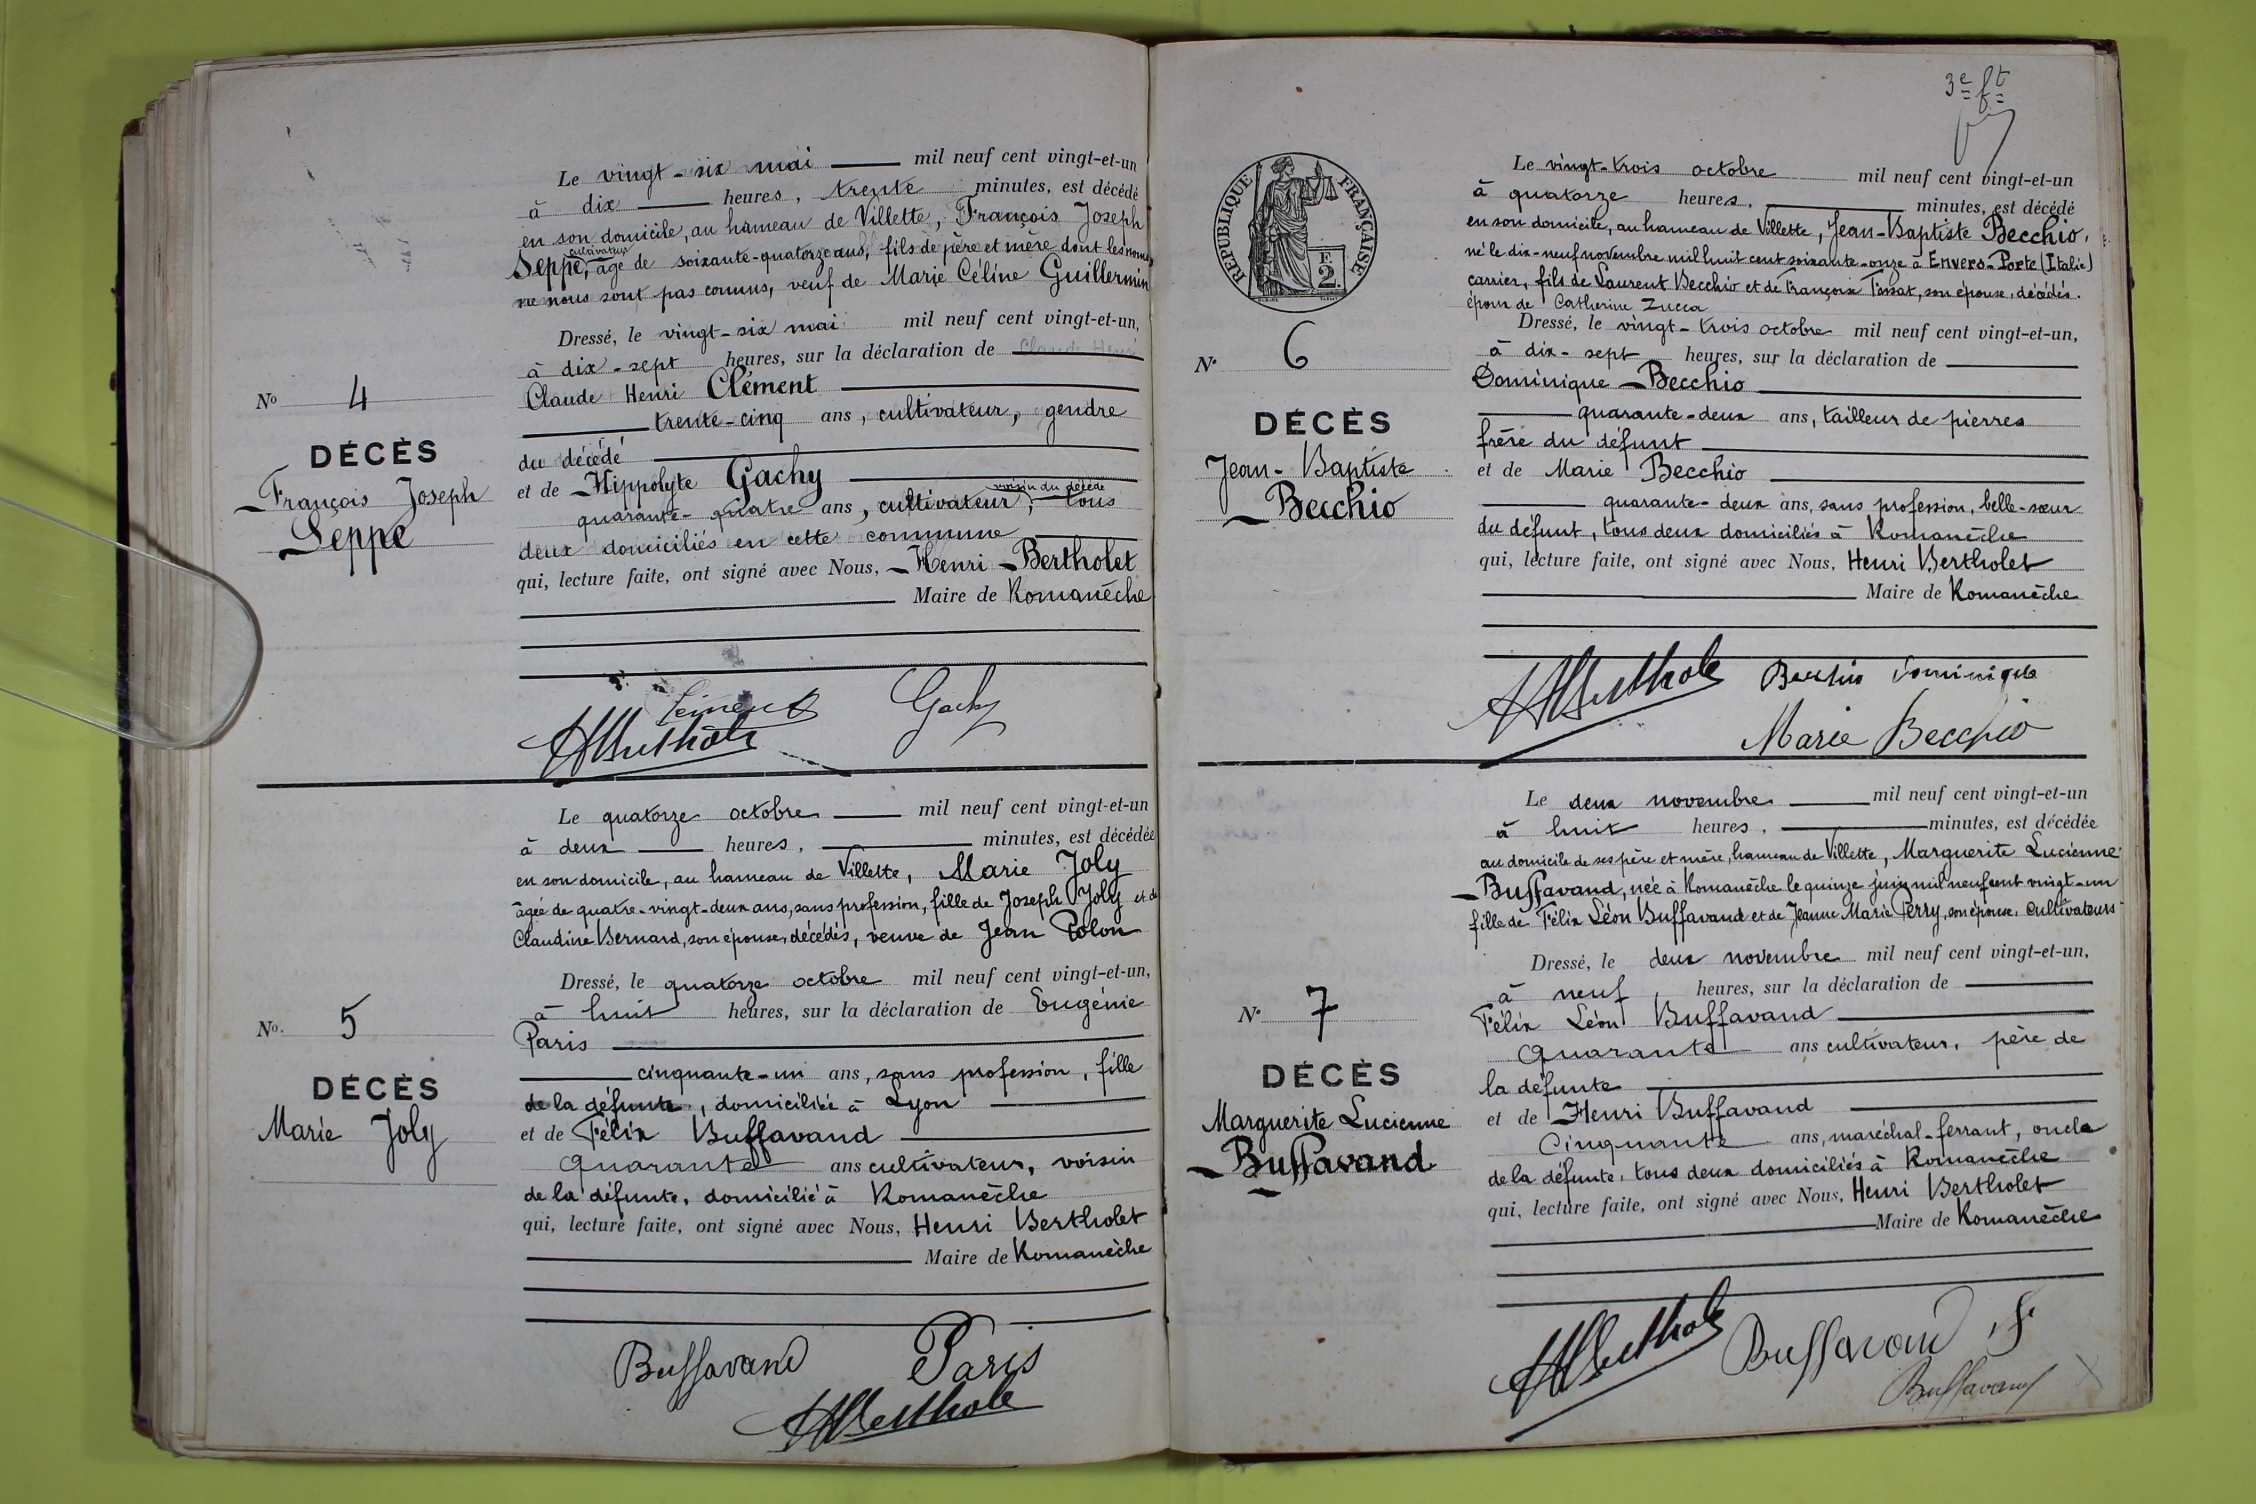 Le vingt-six mai mil neuf cent vingt-et-un
à dix heures, trente minutes, est décédé
en son domicile, au hameau de Villette, François Joseph
cultivateur
Seppe, âgé de soixante-quatorze ans, fils de père et mère dont les noms
ne nous sont pas connus, veuf de Marie Céline Guillermin
Dressé, le vingt-six mai mil neuf cent vingt-et-un,
à dix-sept heures, sur la déclaration de
Claude Henri Clément
trente-cinq ans, cultivateur, gendre
du décédé
et de Hippolyte Gachy
voisin du décédé
quarante-quatre ans, cultivateur, tous
deux domiciliés en cette commune
qui, lecture faite, ont signé avec Nous, Henri Bertholet
Maire de Romanèche
No 4
DÉCÈS
François Joseph
Seppe
Clément Gachy
HBertholet
Le quatorze octobre mil neuf cent vingt-et-un
à deux heures, minutes, est décédée
en son domicile, au hameau de Villette, Marie Joly
âgée de quatre-vingt-deux ans, sans profession, fille de Joseph Joly et de
Claudine Bernard, son épouse, décédés, veuve de Jean Polon
Dressé, le quatorze octobre mil neuf cent vingt-et-un,
à huit heures, sur la déclaration de Eugénie
Paris
cinquante-un ans, sans profession, fille
de la défunte, domiciliée à Lyon
et de Félix Buffavand
Quarante ans cultivateur, voisin
de la défunte, domicilié à Romanèche
qui, lecture faite, ont signé avec Nous, Henri Bertholet
Maire de Romanèche
No. 5
DÉCÈS
Marie Joly
Buffavand Paris
HBertholet
3e ft
RÉPUBLIQUE FRANÇAISE
F
2.
Le vingt-trois octobre mil neuf cent vingt-et-un
à quatorze heures, minutes, est décédé
en son domicile, au hameau de Villette, Jean-Baptiste Becchio,
né le dix-neuf novembre mil huit cent soixante-onze à Envers-Porte (Italie)
carrier, fils de Laurent Becchio et de Françoise Tossat, son épouse, décédés.
époux de Catherine Zucca
Dressé, le vingt-trois octobre mil neuf cent vingt-et-un,
à dix-sept heures, sur la déclaration de
Dominique Becchio
quarante-deux ans, tailleur de pierres
frère du défunt
et de Marie Becchio
quarante-deux ans, sans profession, belle-sœur
du défunt, tous deux domiciliés à Romanèche
qui, lecture faite, ont signé avec Nous, Henri Bertholet
Maire de Romanèche
No 6
DÉCÈS
Jean-Baptiste
Becchio
HBertholet Becchio Dominique
Marie Becchio
Le deux novembre mil neuf cent vingt-et-un
à huit heures, minutes, est décédée
au domicile de ses père et mère, hameau de Villette, Marguerite Lucienne
Buffavand, née à Romanèche le quinze juin mil neuf cent vingt-un
fille de Félix Léon Buffavand et de Jeanne Marie Perry, son épouse, cultivateurs
Dressé, le deux novembre mil neuf cent vingt-et-un,
à neuf heures, sur la déclaration de
Félix Léon Buffavand
Quarante ans cultivateur, père de
la défunte
et de Henri Buffavand
Cinquante ans, maréchal-ferrant, oncle
de la défunte, tous deux domiciliés à Romanèche
qui, lecture faite, ont signé avec Nous, Henri Bertholet
Maire de Romanèche
No 7
DÉCÈS
Marguerite Lucienne
Buffavand
HBertholet Buffavand F.
Buffavand